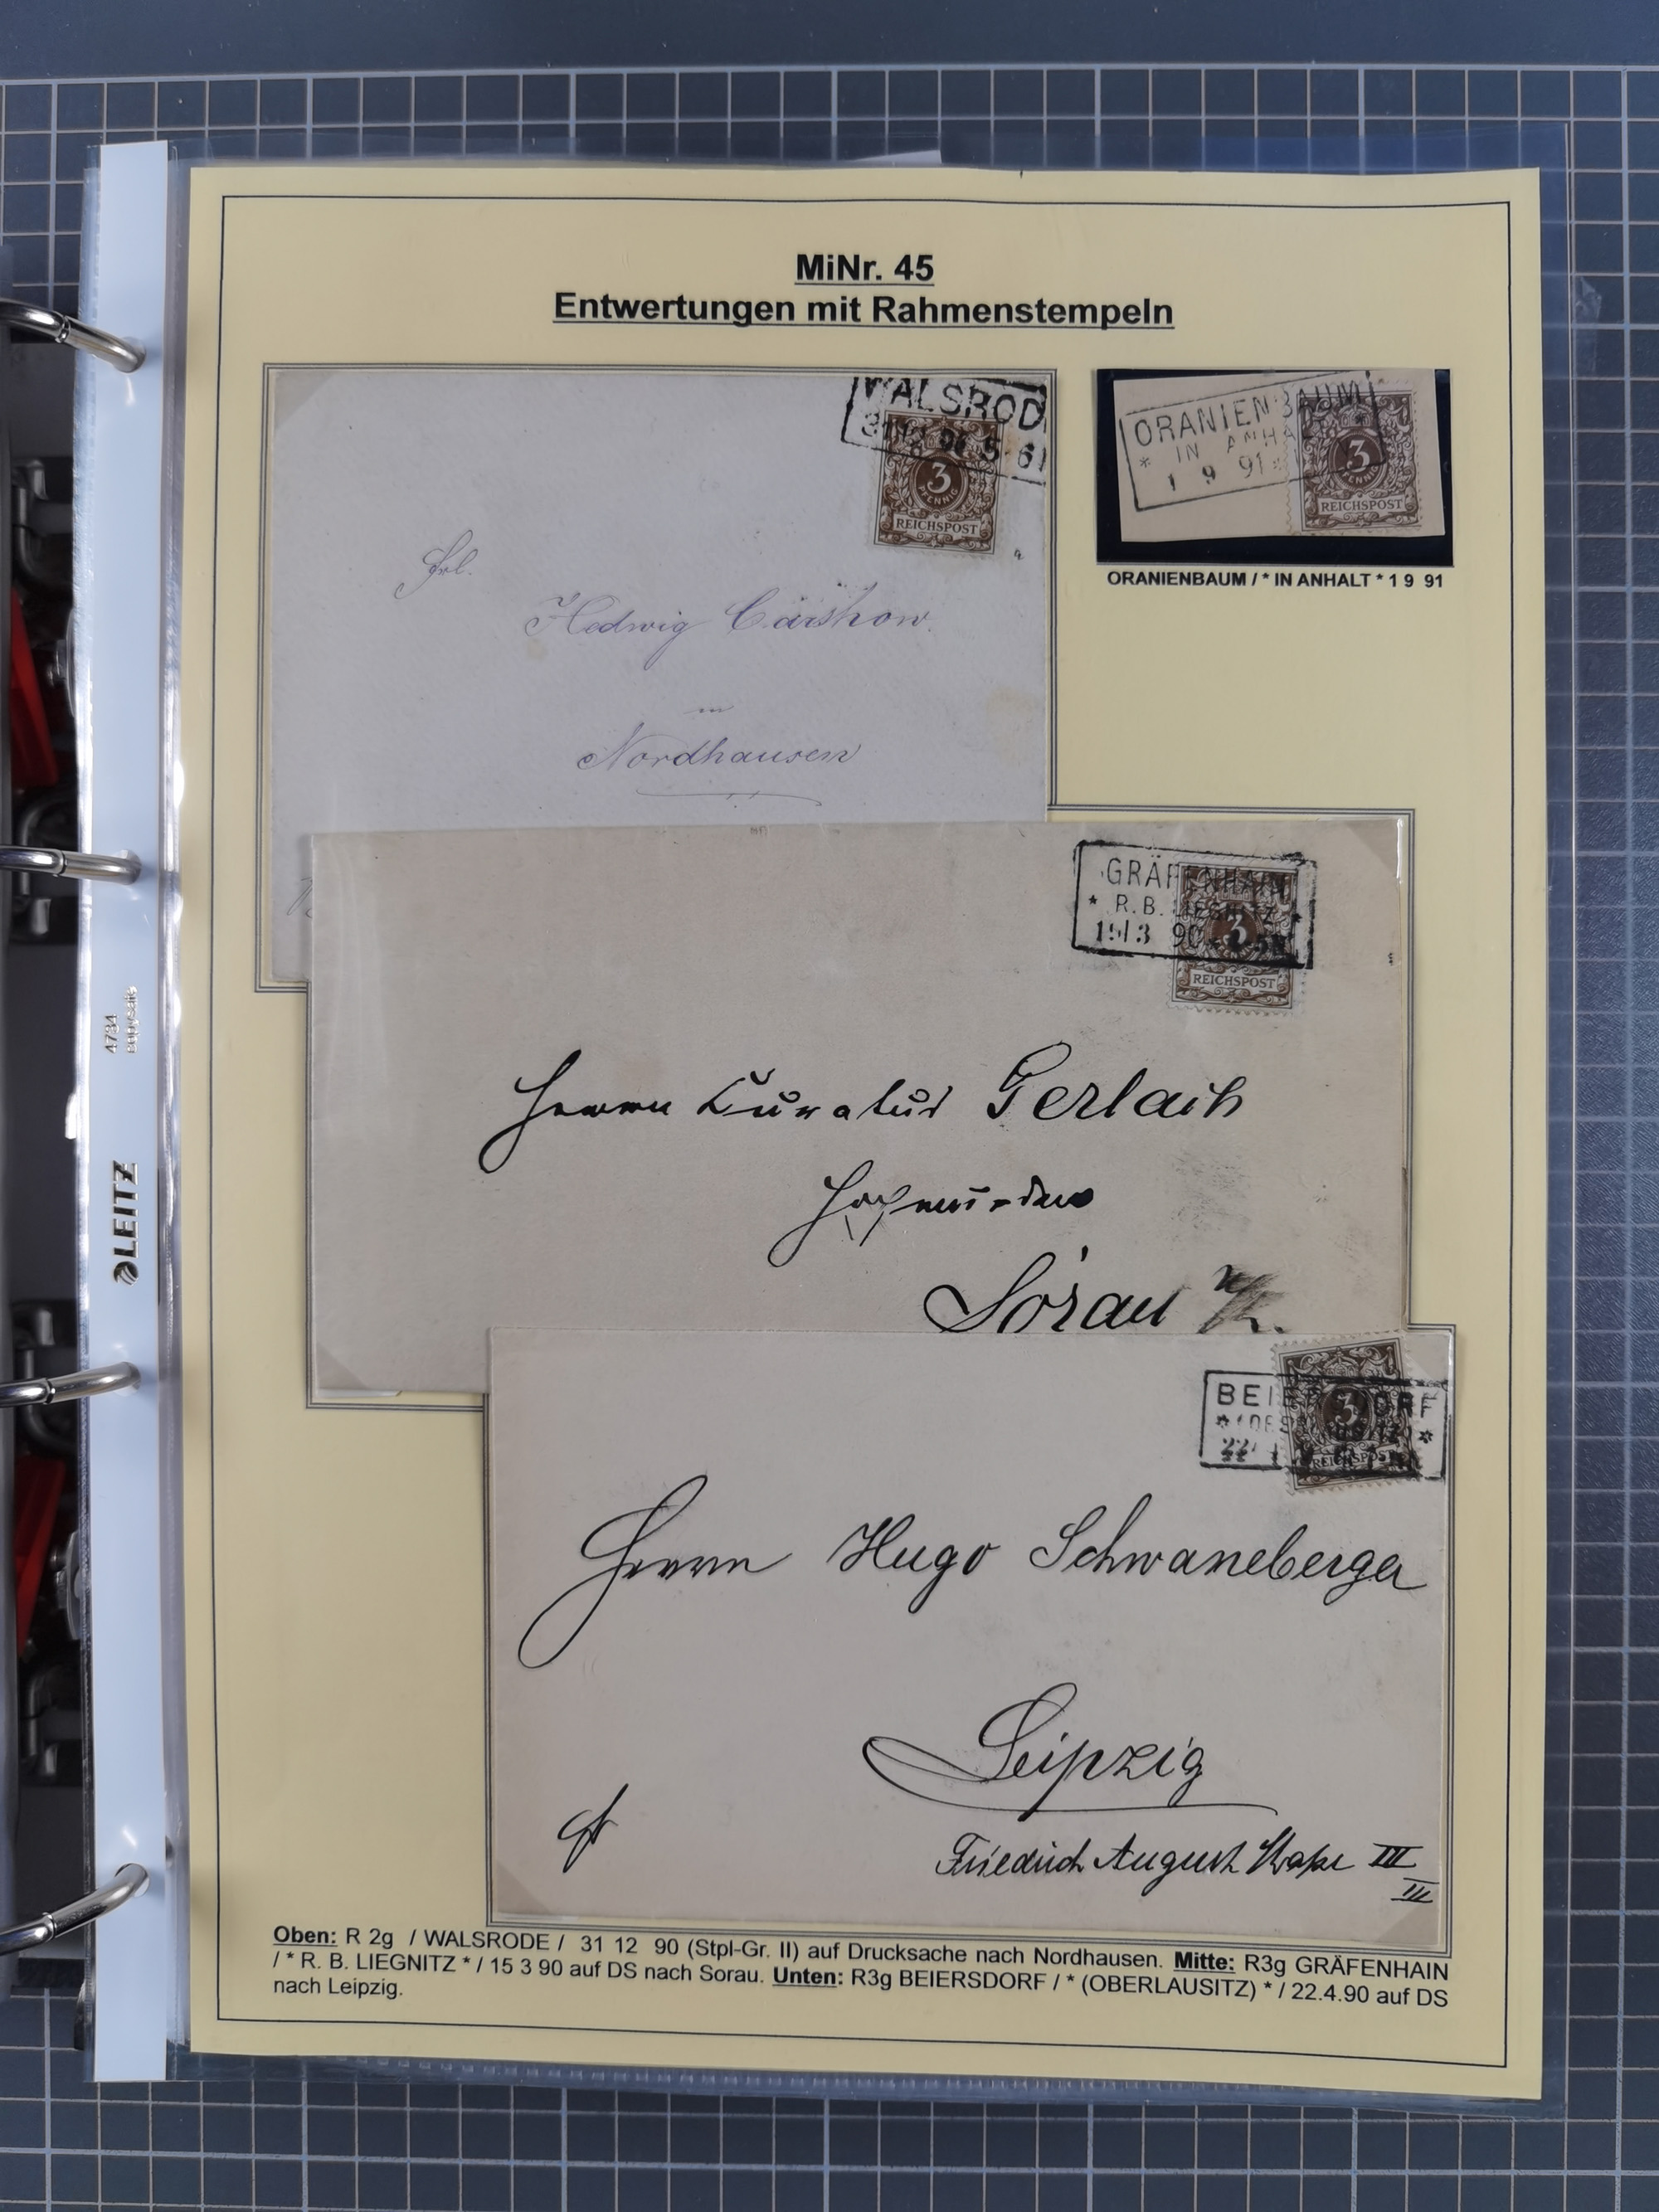 MiNr. 45
Entwertungen mit Rahmenstempeln
WALSROD
3 PFENNIG
REICHSPOST
Frl.
Hedwig
in
Nordhausen
ORANIENBAUM
* IN ANHALT *
1 9 91
3 PFENNIG
REICHSPOST
ORANIENBAUM / * IN ANHALT * 1 9 91
GRÄFENHAIN
* R.B. LIEGNITZ *
15/3 90
3
REICHSPOST
Herrn Gerlach
Sorau
BEIERSDORF
3
REICHSPOST
Herrn Hugo Schwaneberger
Leipzig
Friedrich August III
III
4734
copysafe
LEITZ
Oben: R 2g / WALSRODE / 31 12 90 (Stpl-Gr. II) auf Drucksache nach Nordhausen. Mitte: R3g GRÄFENHAIN
/ * R. B. LIEGNITZ * / 15 3 90 auf DS nach Sorau. Unten: R3g BEIERSDORF / * (OBERLAUSITZ) * / 22.4.90 auf DS
nach Leipzig.